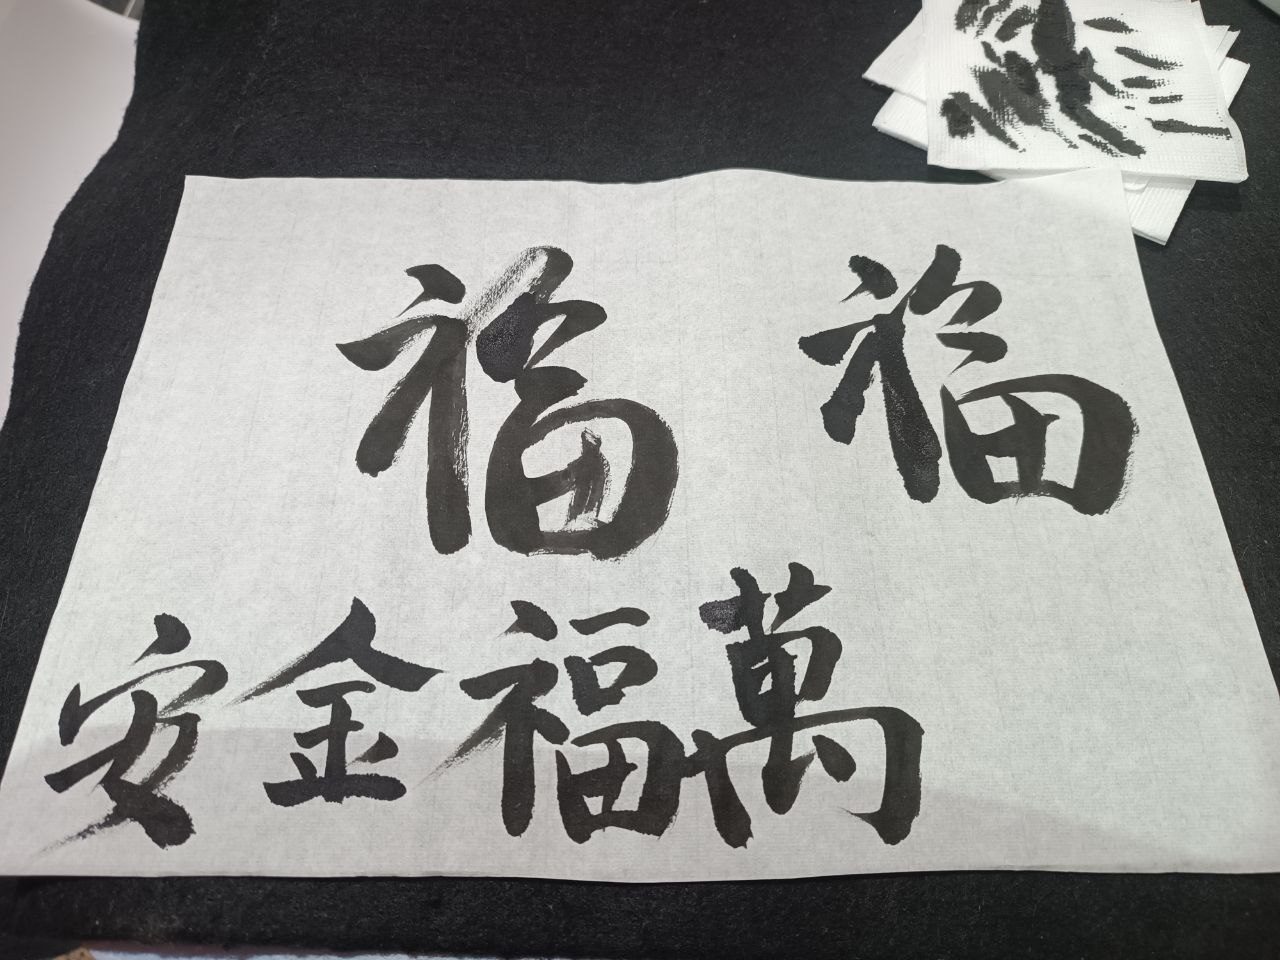 福 福
安金福萬